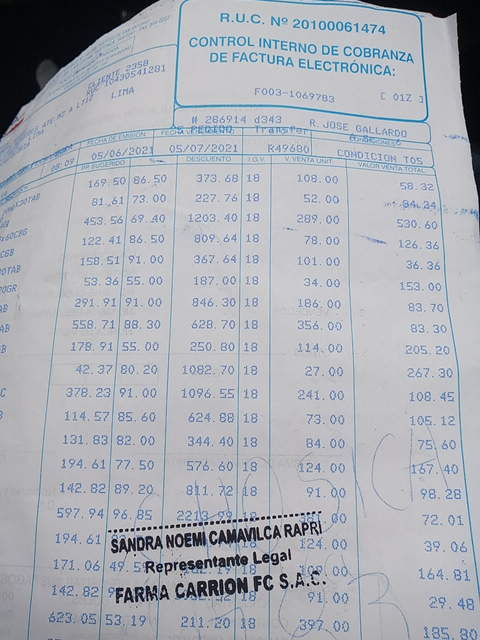 R.U.C. Nº 20100061474
CONTROL INTERNO DE COBRANZA
DE FACTURA ELECTRÓNICA:
F003-1069783 [ 01Z ]
CLIENTE 2358
RUC 10430541281
LIMA
N 286914 d343 R.JOSE GALLARDO
PEDIDO Transfer
FECHA DE EMISIÓN
08:09 05/06/2021 05/07/2021 R49680 CONDICION T05
DESCUENTO I.G.V. V. VENTA UNIT. VALOR VENTA TOTAL
169.50 86.50 373.68 18 108.00 58.32
81.61 73.00 227.76 18 52.00 84.24
453.56 69.40 1203.40 18 289.00 530.60
122.41 86.50 809.64 18 78.00 126.36
158.51 91.00 367.64 18 101.00 36.36
53.36 55.00 187.00 18 34.00 153.00
291.91 91.00 846.30 18 186.00 83.70
558.71 88.30 628.70 18 356.00 83.30
178.91 55.00 250.80 18 114.00 205.20
42.37 80.20 1082.70 18 27.00 267.30
378.23 91.00 1096.55 18 241.00 108.45
114.57 85.60 624.88 18 73.00 105.12
131.83 82.00 344.40 18 84.00 75.60
194.61 77.50 576.60 18 124.00 167.40
142.82 89.20 811.72 18 91.00 98.28
597.94 96.85 2213.99 18 72.01
194.61 124.00 39.06
SANDRA NOEMI CAMAVILCA RAPRI
171.06 164.81
Representante Legal
142.82 91.00 29.48
FARMA CARRION FC S.A.C.
623.05 53.19 211.20 18 397.00 185.80